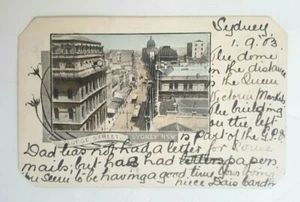 Sydney
1.9.03
The dome
in the distance
is the Queen
Victoria Markets
the building
on the left
is part of the G.P.O.
GEORGE STREET, SYDNEY N.S.W.
Dad has not had a letter for some
mails, but has had papers
you seem to be having a good time
nice